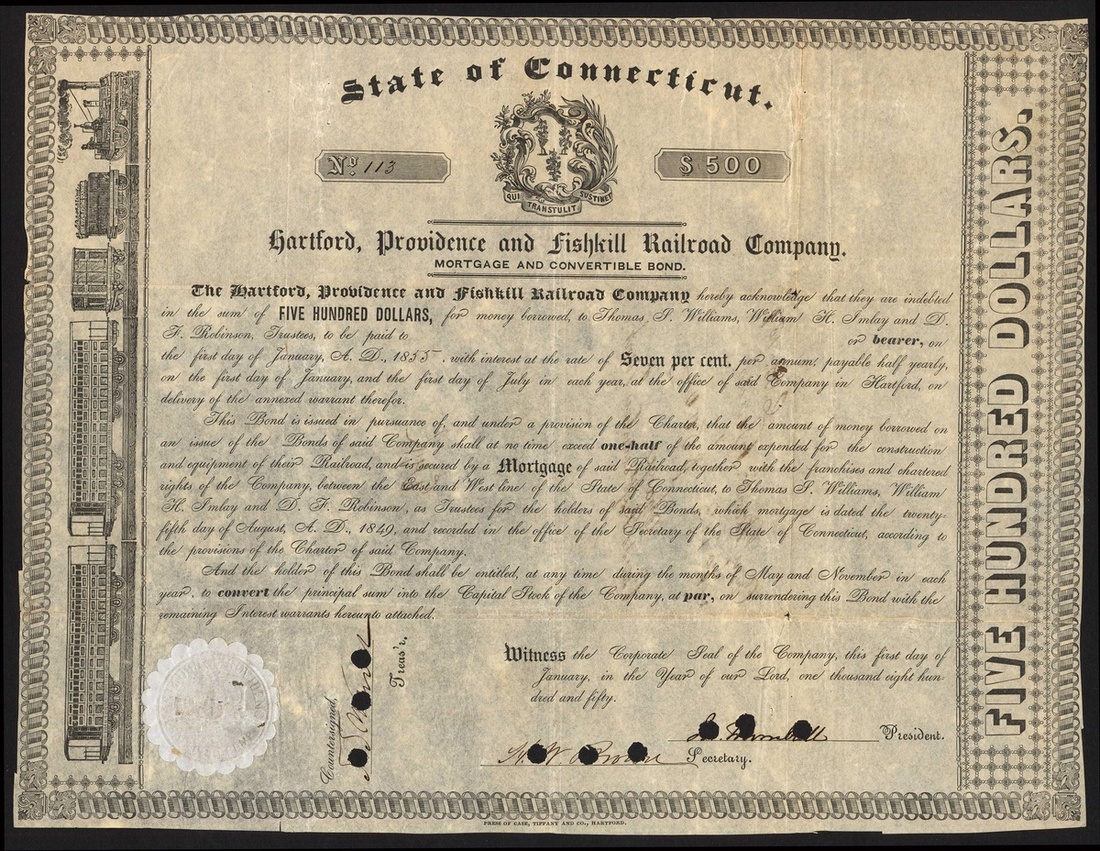 State of Connecticut.
No. 113
$500
QUI TRANSTULIT SUSTINET
Hartford, Providence and Fishkill Railroad Company.
MORTGAGE AND CONVERTIBLE BOND.
The Hartford, Providence and Fishkill Railroad Company hereby acknowledge that they are indebted
in the sum of FIVE HUNDRED DOLLARS, for money borrowed, to Thomas S. Williams, William H. Imlay and D.
F. Robinson, Trustees, to be paid to or bearer, on
the first day of January, A. D., 1855, with interest at the rate of Seven per cent. per annum, payable half yearly,
on the first day of January, and the first day of July in each year, at the office of said Company in Hartford, on
delivery of the annexed warrant therefor.
This Bond is issued in pursuance of, and under a provision of the Charter, that the amount of money borrowed on
an issue of the Bonds of said Company shall at no time exceed one-half of the amount expended for the construction
and equipment of their Railroad, and is secured by a Mortgage of said Railroad, together with the franchises and chartered
rights of the Company, between the East and West line of the State of Connecticut, to Thomas S. Williams, William
H. Imlay and D. F. Robinson, as Trustees for the holders of said Bonds, which mortgage is dated the twenty-
fifth day of August, A. D., 1849, and recorded in the office of the Secretary of the State of Connecticut, according to
the provisions of the Charter of said Company.
And the holder of this Bond shall be entitled, at any time during the months of May and November in each
year, to convert the principal sum into the Capital Stock of the Company, at par, on surrendering this Bond with the
remaining Interest warrants hereunto attached.
Witness the Corporate Seal of the Company, this first day of
January, in the Year of our Lord, one thousand eight hun-
dred and fifty.
President.
Secretary.
Countersigned,
Treas'r.
FIVE HUNDRED DOLLARS.
PRESS OF CASE, TIFFANY AND CO., HARTFORD.